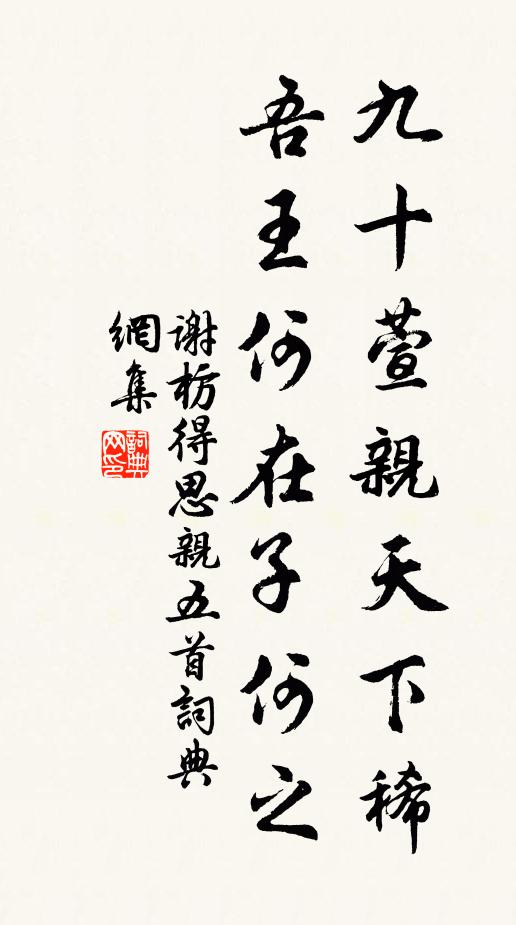 九十萱親天下稀
吾王何在子何之
谢枋得思親五首詞典
網集
詞典
网印